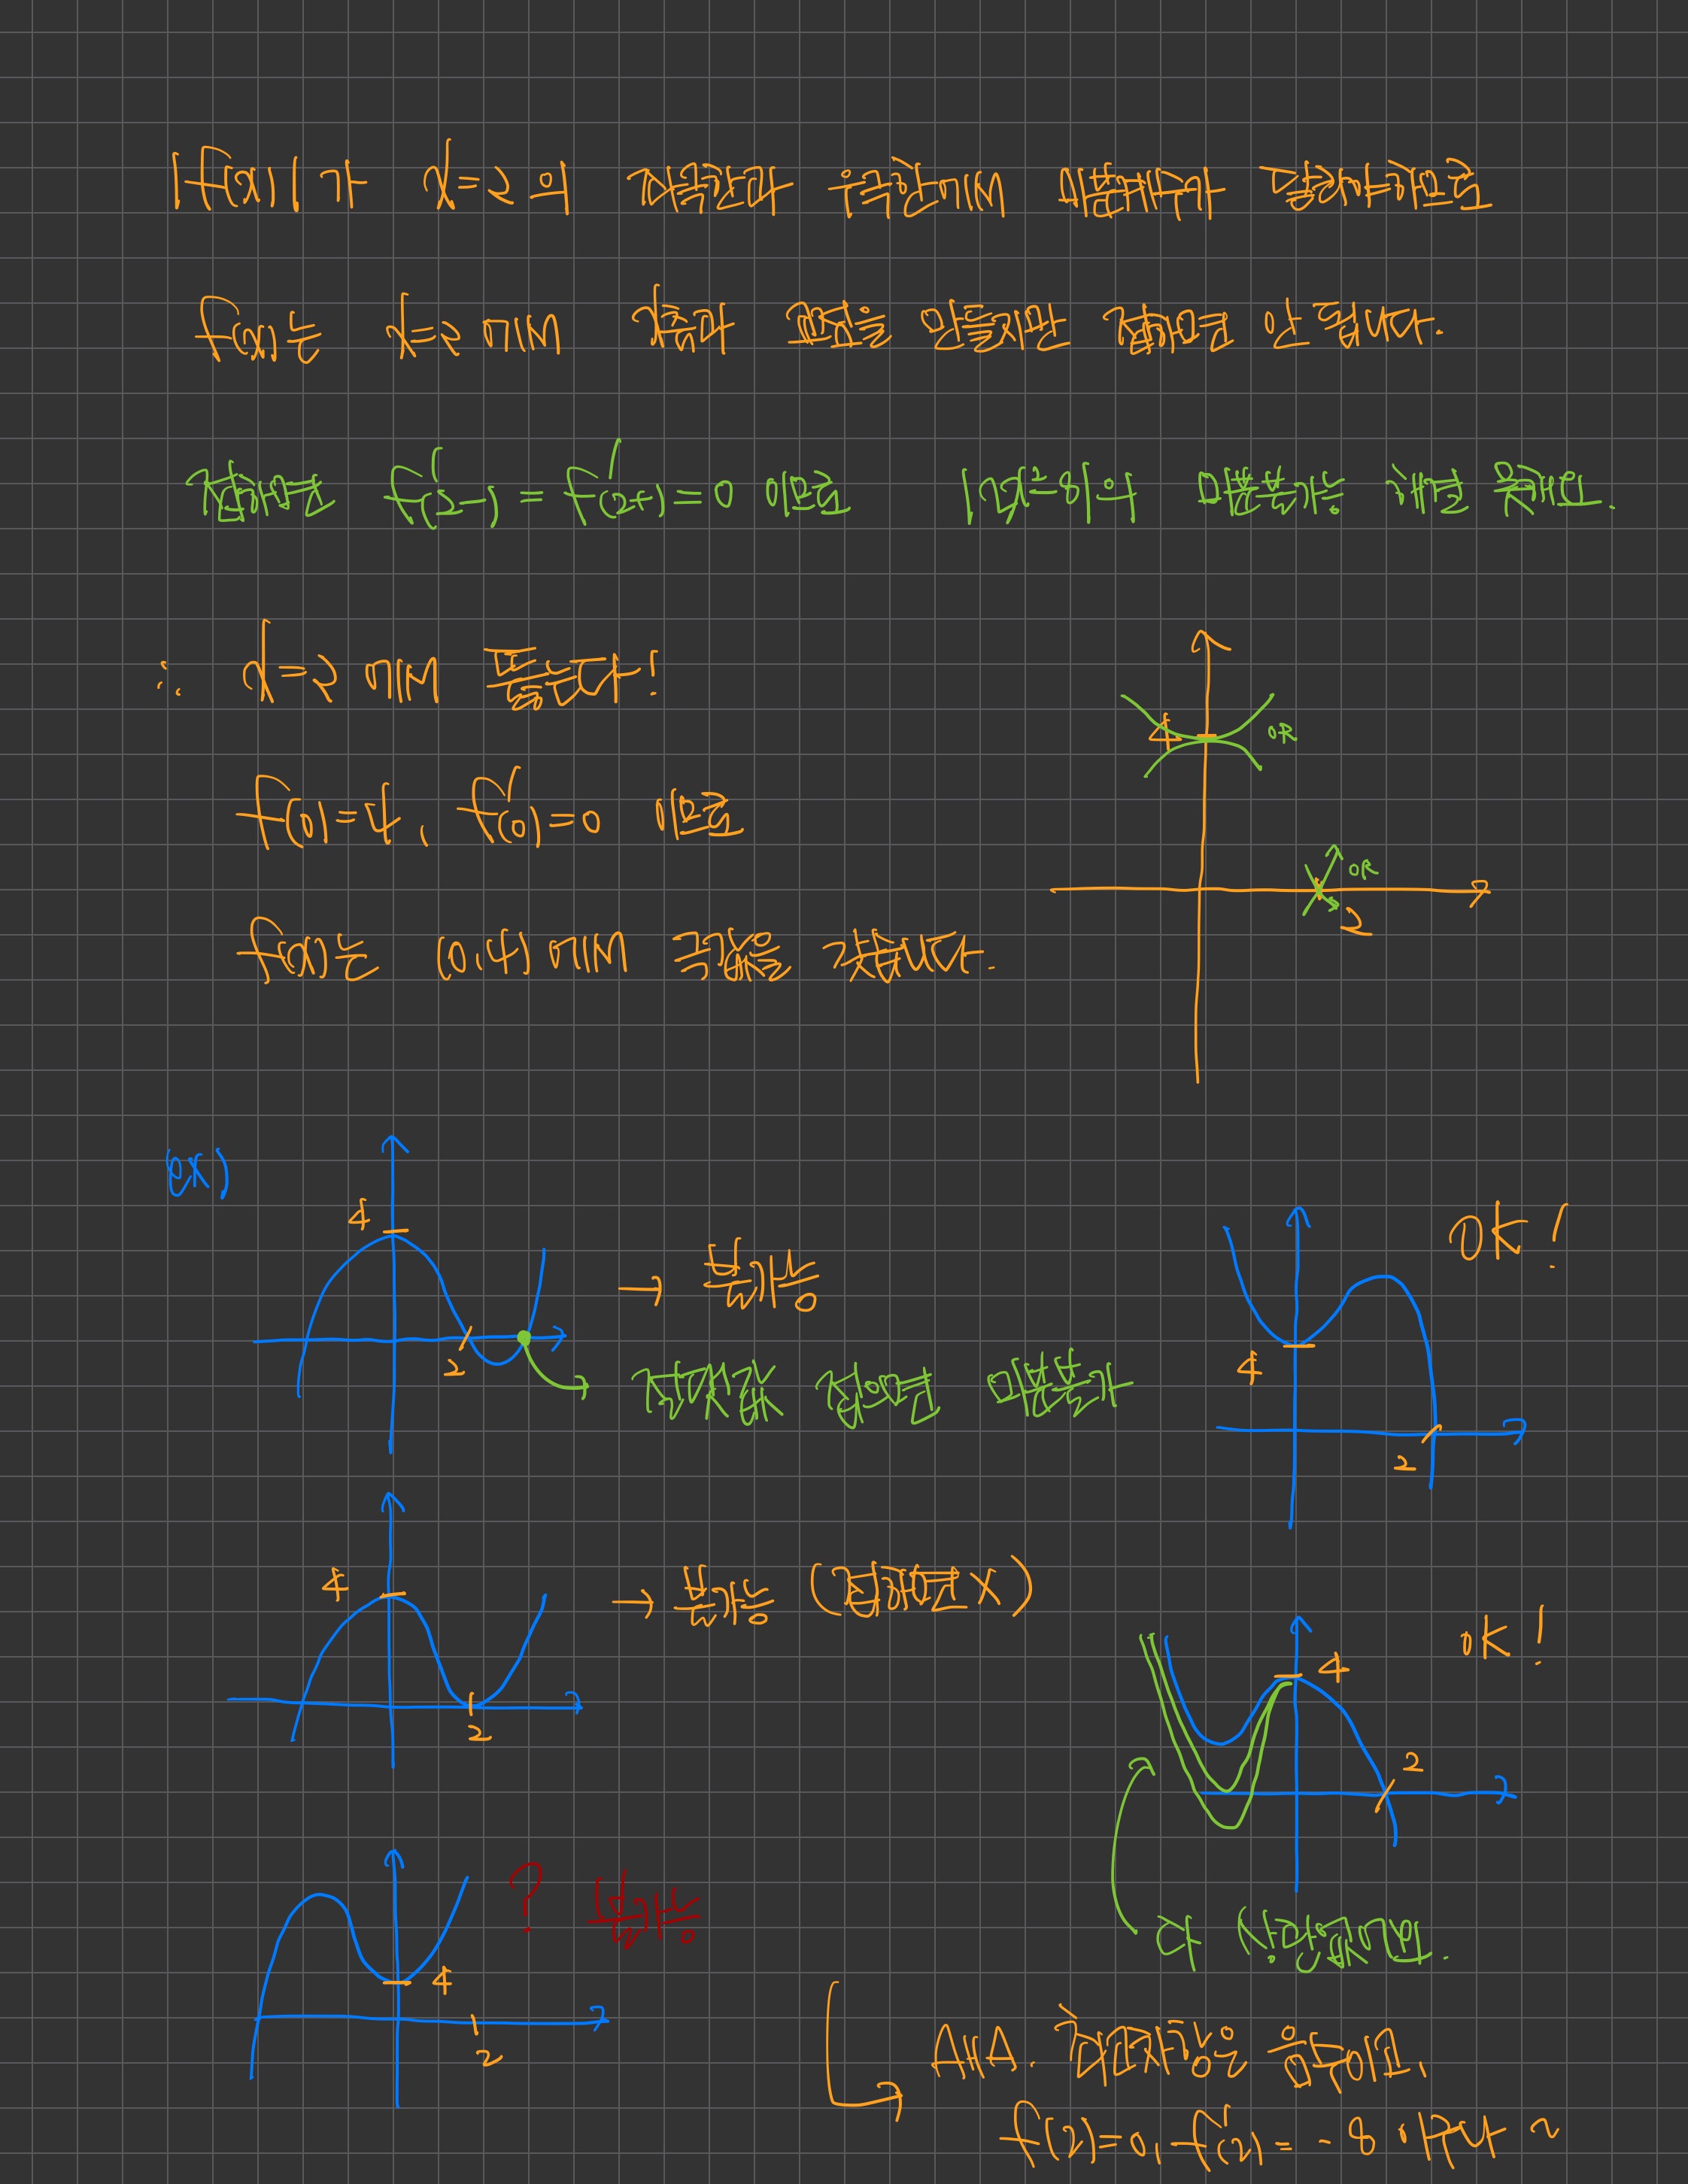 |f(x)|가 x=2의 좌극한과 우극한에서 미분계수가 동일해야하므로
f(x)는 x=2에서 x축과 교점을 만들지만 접하면 안 됩니다.
접하면 f'(2-) = f'(2+) = 0 이므로 |2x²-8|의 미분불가능 해결 못해요.
∴ x=2에서 뚫는다!
4
OR
f(0)=4, f'(0)=0 이므로
OR
2
f(x)는 (0,4)에서 극값을 갖습니다.
ex)
4
→ 불가능
OK!
2
점에서 접으면 미분불가
4
2
4
→ 불가능 (접하면 X)
OK!
4
2
2
? 불가능
4
다 상관없어요.
2
AHA. 최고차항은 음수이고,
f(2)=0, f'(2) = -8 이구나~